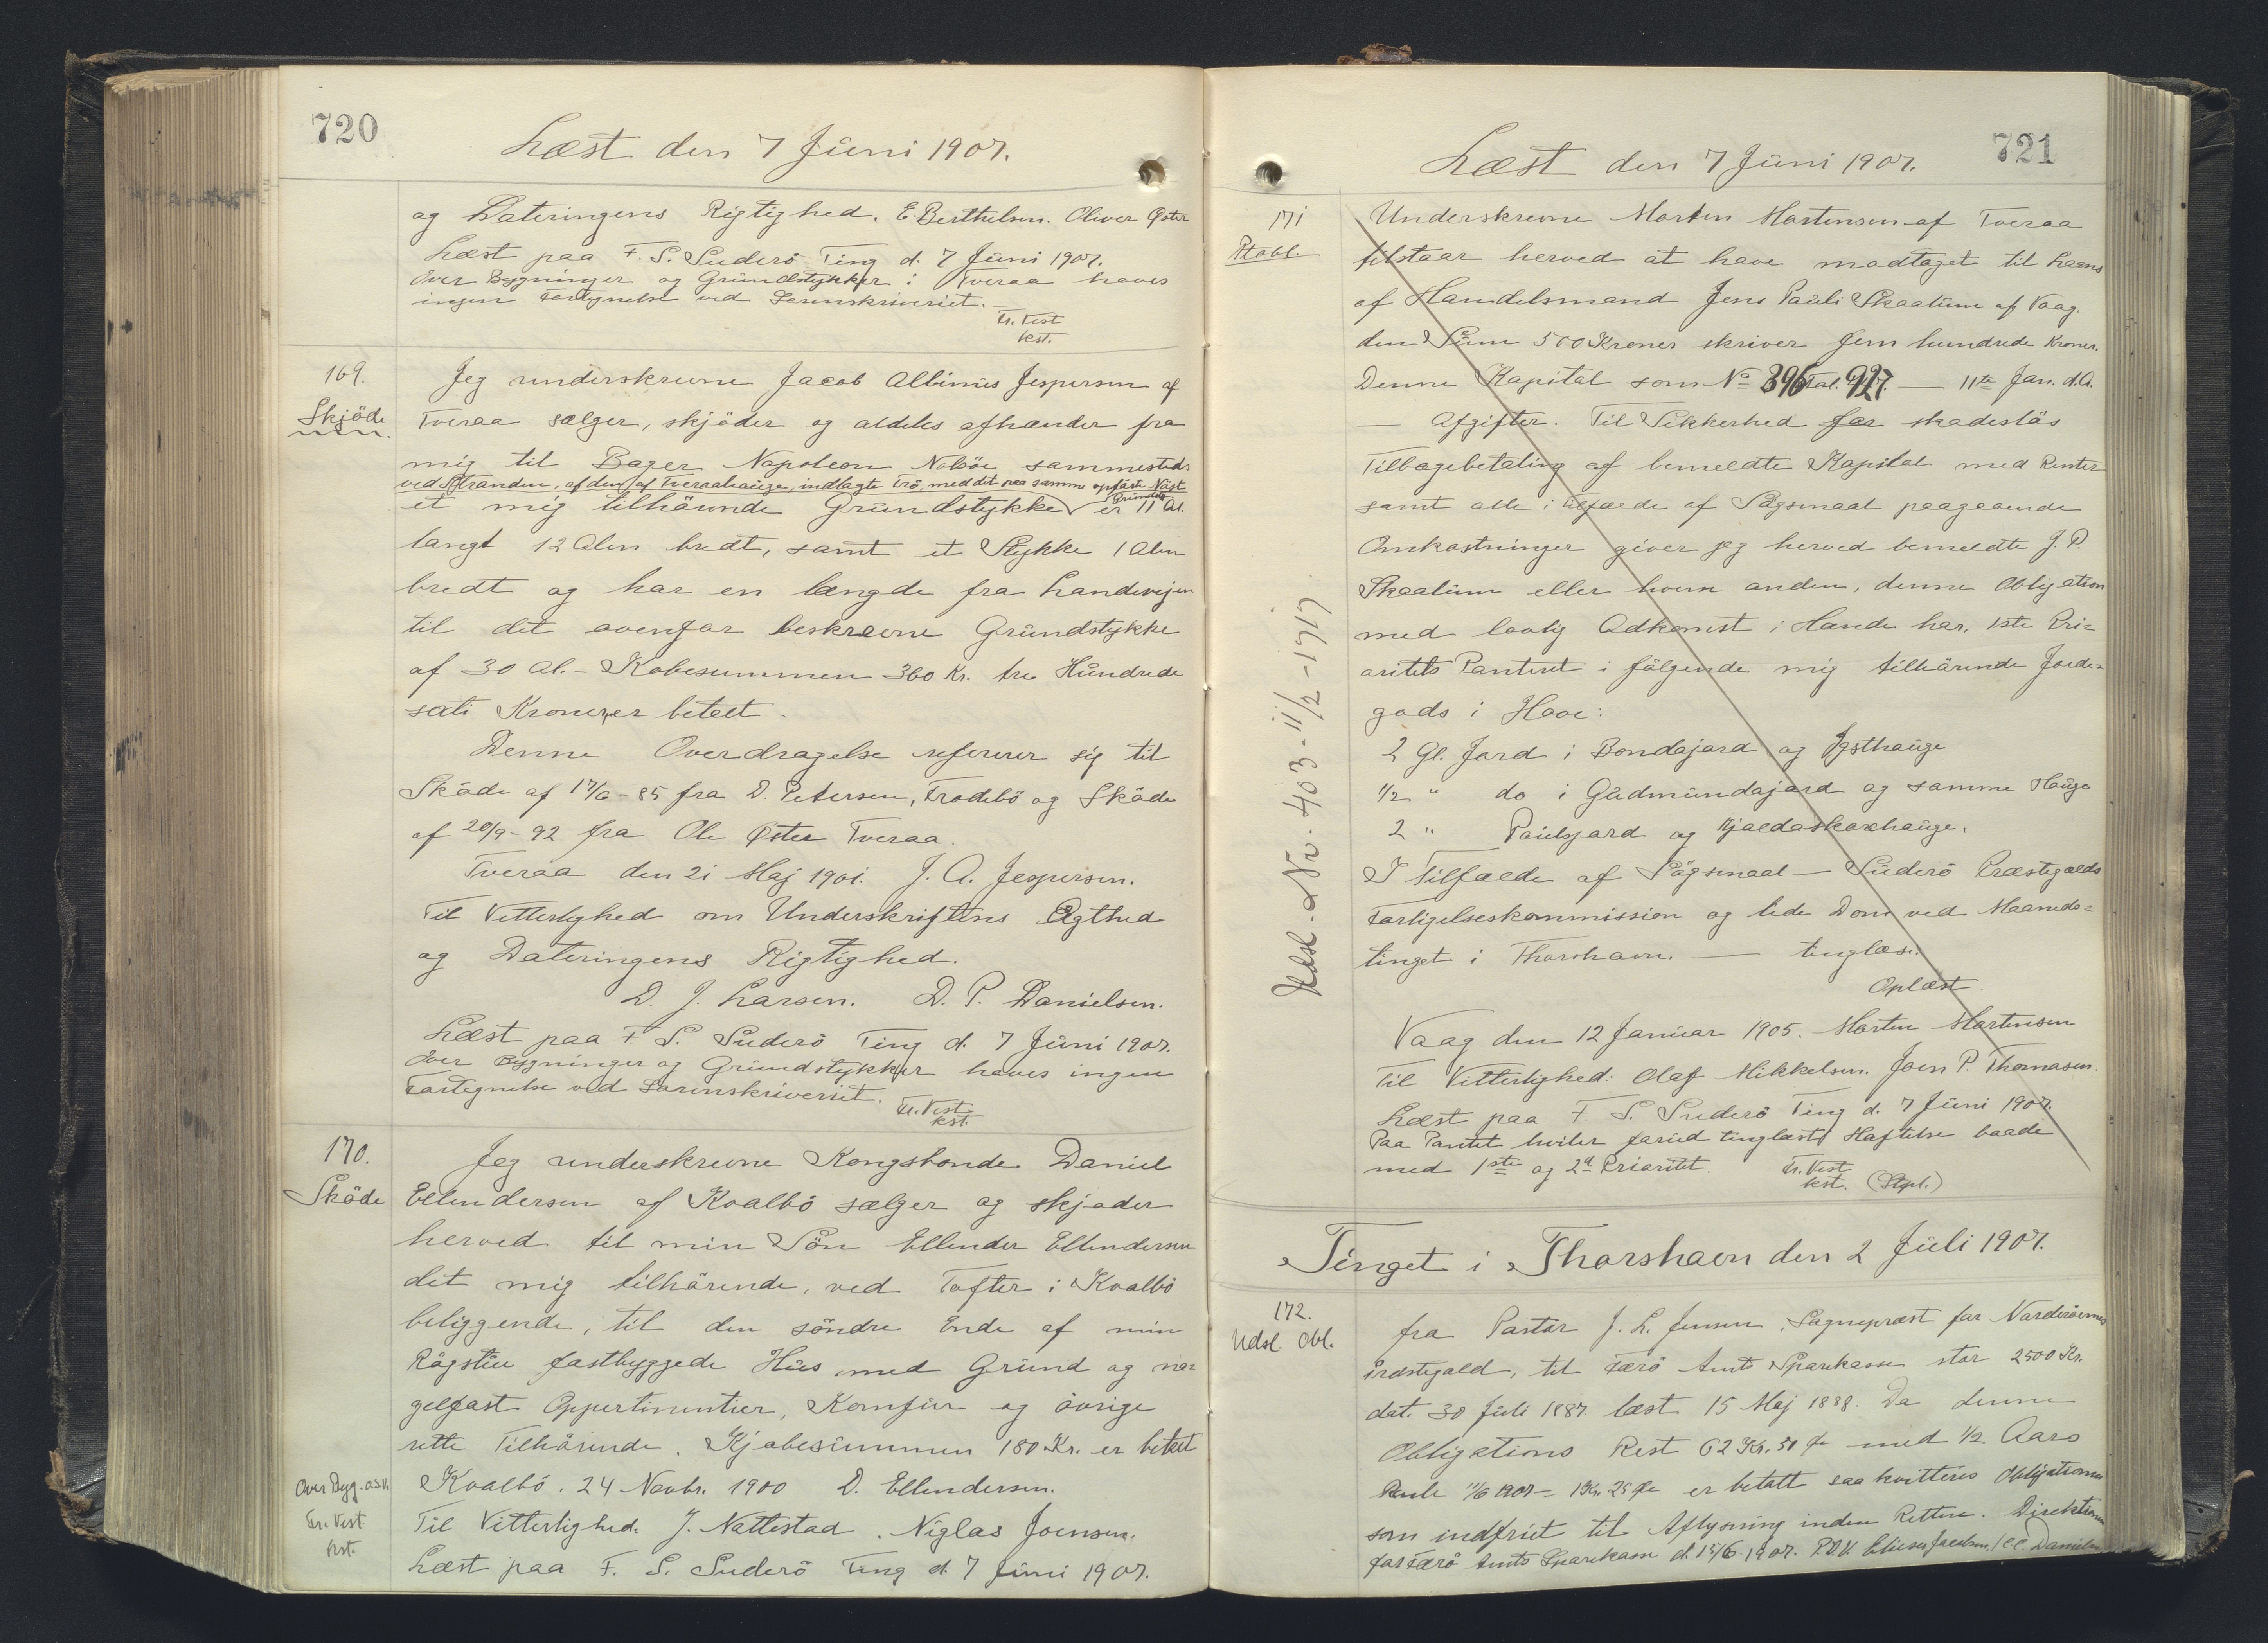 720
Læst den 7 Juni 1907.
og Dateringens Rigtighed. E. Berthelsen. Oliver Øster
Læst paa F. S. Suderö Ting d. 7 Juni 1907.
Over Bygninger og Grundstykker i Tveraa haves
ingen Fortegnelse ved Sorenskriveriet.
Fr. Vest
kst.
169.
Skjöde
Jeg underskrevne Jacob Albinus Jespersen af
Tveraa sælger, skjöder og aldeles afhænder fra
mig til Bager Napoleon Nolsöe sammesteds
ved Stranden, af den af Tveraahauge, indtagte Trö, med det paa samme opförte Nöst
et mig tilhörende Grundstykke Grunden er 11 Al.
langt 12 Alen bredt, samt et Stykke 1 Alen
bredt og har en længde fra Landevejen
til det ovenfor beskrevne Grundstykke
af 30 Al. - Köbesummen 360 Kr. tre Hundrede
sexti Kroner, er betalt.
Denne Overdragelse refererer sig til
Sköde af 17/6 - 85 fra D. Petersen, Frodebö og Sköde
af 20/9 - 92 fra Ole Øster Tveraa.
Tveraa den 21 Maj 1901. J. A. Jespersen.
Til Vitterlighed om Underskriftens Ægthed
og Dateringens Rigtighed.
D. J. Larsen. D. P. Danielsen.
Læst paa F. S. Suderö Ting d. 7 Juni 1907.
Over Bygninger og Grundstykker haves ingen
Fortegnelse ved Sorenskriveriet.
Fr. Vest
kst.
170.
Sköde
Jeg underskrevne Kongsbonde Daniel
Ellendersen af Kvalbö sælger og skjøder
herved til min Sön Ellender Ellendersen
det mig tilhörende, ved Tofter i Kvalbö
beliggende, til den söndre Ende af min
Rögstue fastbyggede Hus med Grund og na-
gelfast Appertinentier, Komfur og övrige
rette Tilhörende. Kjøbesummen 180 Kr. er betalt
Kvalbö. 24 Novbr. 1900 D. Ellendersen.
Til Vitterlighed. J. Nattestad. Niglas Joensen.
Læst paa F. S. Suderö Ting d. 7 Juni 1907.
Over Byg. o.s.v.
Fr. Vest
kst.
721
Læst den 7 Juni 1907.
171
Ptobl.
Udsl. Nr. 403 - 11/2 - 1917
Underskrevne Morten Mortensen af Tveraa
tilstaar herved at have modtaget til Laans
af Handelsmand Jens Pauli Skaalum af Vaag.
den Sum 500 Kroner skriver fem hundrede Kroner.
Denne Kapital som No 396 Fol. 927. — 11te Jan. d.A.
— Afgifter. Til Sikkerhed for skadeslös
Tilbagebetaling af bemeldte Kapital med Renter
samt alle i tilfælde af Sögsmaal paagaaende
Omkostninger giver jeg herved bemeldte J. P.
Skaalum eller hvem anden, denne Obligation
med lovlig Adkomst i Hænde har, 1ste Pri-
oritets Panteret i fölgende mig tilhörende Jorde-
gods i Hove:
2 Gl. Jord i Bondajard og Ysthauge
1/2 " do i Gudmundajard og samme Hauge
2 " Paulsjard og Kjaldaskorhauge.
I Tilfælde af Sögsmaal — Suderö Præstegælds
Forligelseskommission og lide Dom ved Maaneds-
tinget i Thorshavn. — tinglæs.
Oplæst.
Vaag den 12 Januar 1905. Morten Mortensen
Til Vitterlighed: Olaf Mikkelsen. Joen P. Thomasen.
Læst paa F. S. Suderö Ting d. 7 Juni 1907.
Paa Pantet hviler forud tinglæst Hæftelse baade
med 1ste og 2d Prioritet.
Fr. Vest
kst. (Stpl.)
Tinget i Thorshavn den 2 Juli 1907.
172.
Udsl. Obl.
fra Pastor J. L. Jensen, Sognepræst for Norderöernes
Præstegæld, til Færö Amts Sparekasse stor 2500 Kr.
dat. 30 Juli 1887 læst 15 Maj 1888. Da denne
Obligations Rest 62 Kr. 50 Øre med 1/2 Aars
Rente 11/6 1907 = 1 Kr. 25 Øre er betalt saa kvitteres Obligationen
som indfriet til Aflysning inden Retten. Direktionen
for Færö Amts Sparekasse d. 15/6 1907. P.D.V. Elieser Jacobsen / C.C. Danielsen